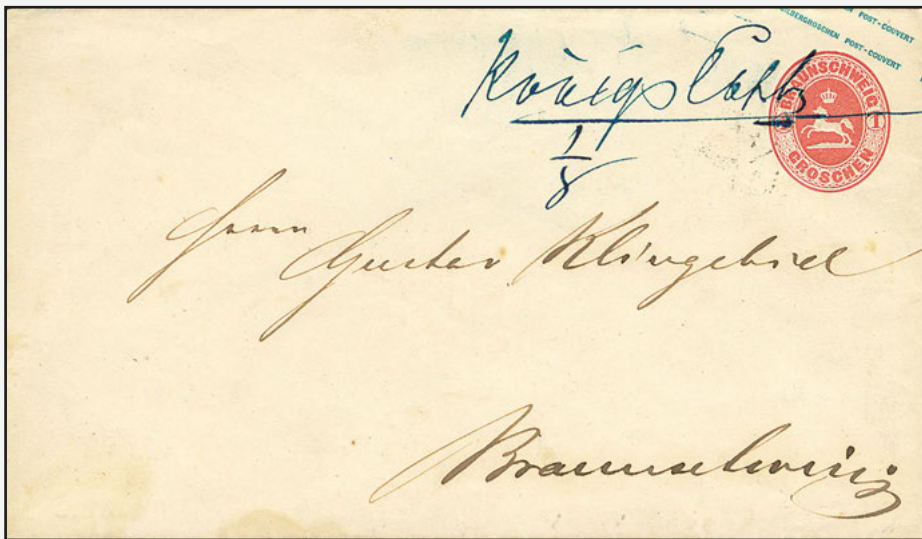 POST-COUVERT
SILBERGROSCHEN POST-COUVERT
Königs Lahh
BRAUNSCHWEIG
1 1
GROSCHEN
1/8
Herrn
Gustav Klingebiel
Braunschweig